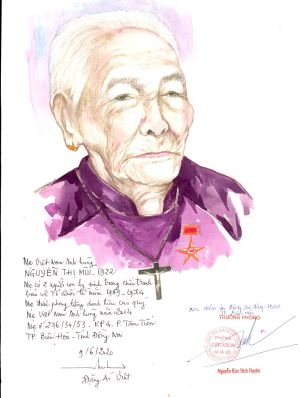 Mẹ Việt Nam Anh hùng
NGUYỄN THỊ MÙI. 1922
Mẹ có 2 người con hy sinh trong chiến tranh
bảo vệ Tổ quốc từ năm 1969 - 1974
Mẹ được phong tặng danh hiệu cao quý
Mẹ Việt Nam Anh hùng năm
Mẹ ở 276/34/53 - KP 4. P. Tân Tiến
TP. Biên Hòa - Tỉnh Đồng Nai
9/6/2020
Đặng Ái Việt
TRƯỞNG PHÒNG
Nguyễn Kim Bích Huyền